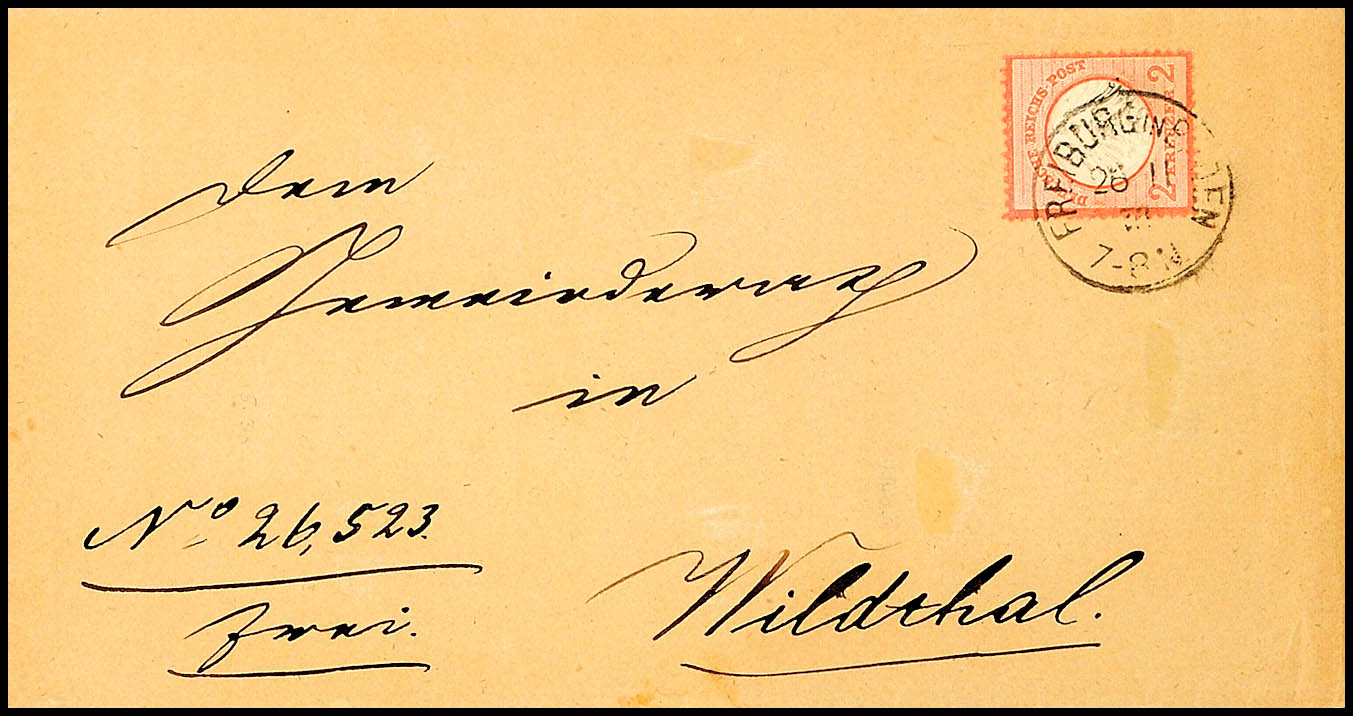 DEUTSCHE REICHS-POST
2 KREUZER 2
FREIBURG IN BADEN
28 11
7-8 N
Dem
Gemeinderath
in
No 26,523.
frei.
Wildthal.